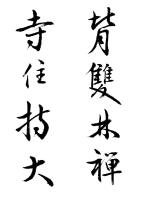 皆雙林禅
寺住持大